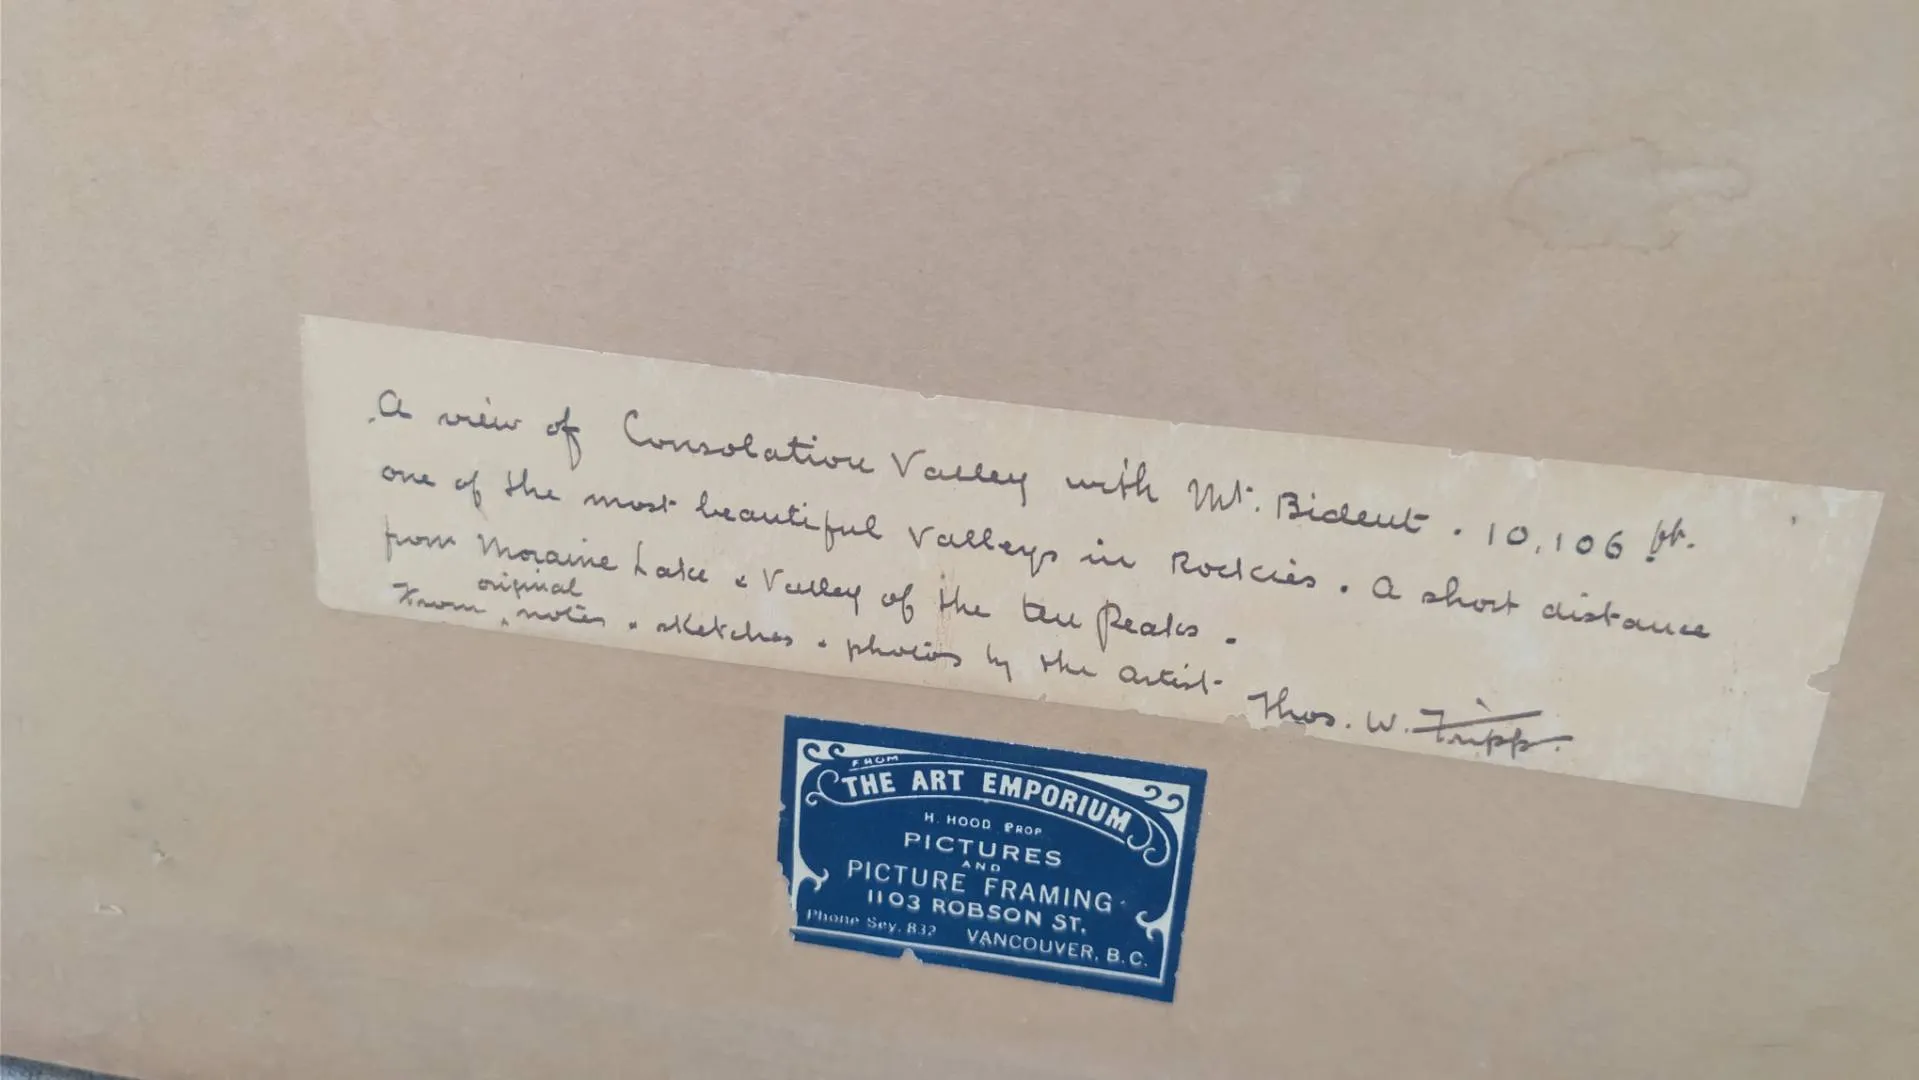 A view of Consolation Valley with Mt. Bident . 10,106 ft.
one of the most beautiful Valleys in Rockies . A short distance
from Moraine Lake & Valley of the ten Peaks .
original
From , notes & sketches & photos by the Artist Thos. W. Fripp.
FROM
THE ART EMPORIUM
H. HOOD PROP
PICTURES
AND
PICTURE FRAMING
1103 ROBSON ST.
Phone Sey. 832 VANCOUVER, B.C.